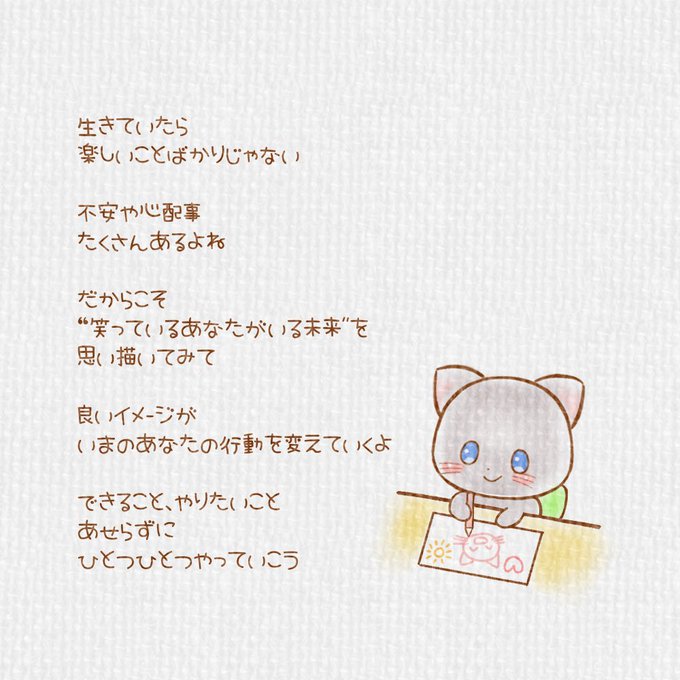 生きていたら
楽しいことばかりじゃない
不安や心配事
たくさんあるよね
だからこそ
“笑っているあなたがいる未来”を
思い描いてみて
良いイメージが
いまのあなたの行動を変えていくよ
できること、やりたいこと
あせらずに
ひとつひとつやっていこう